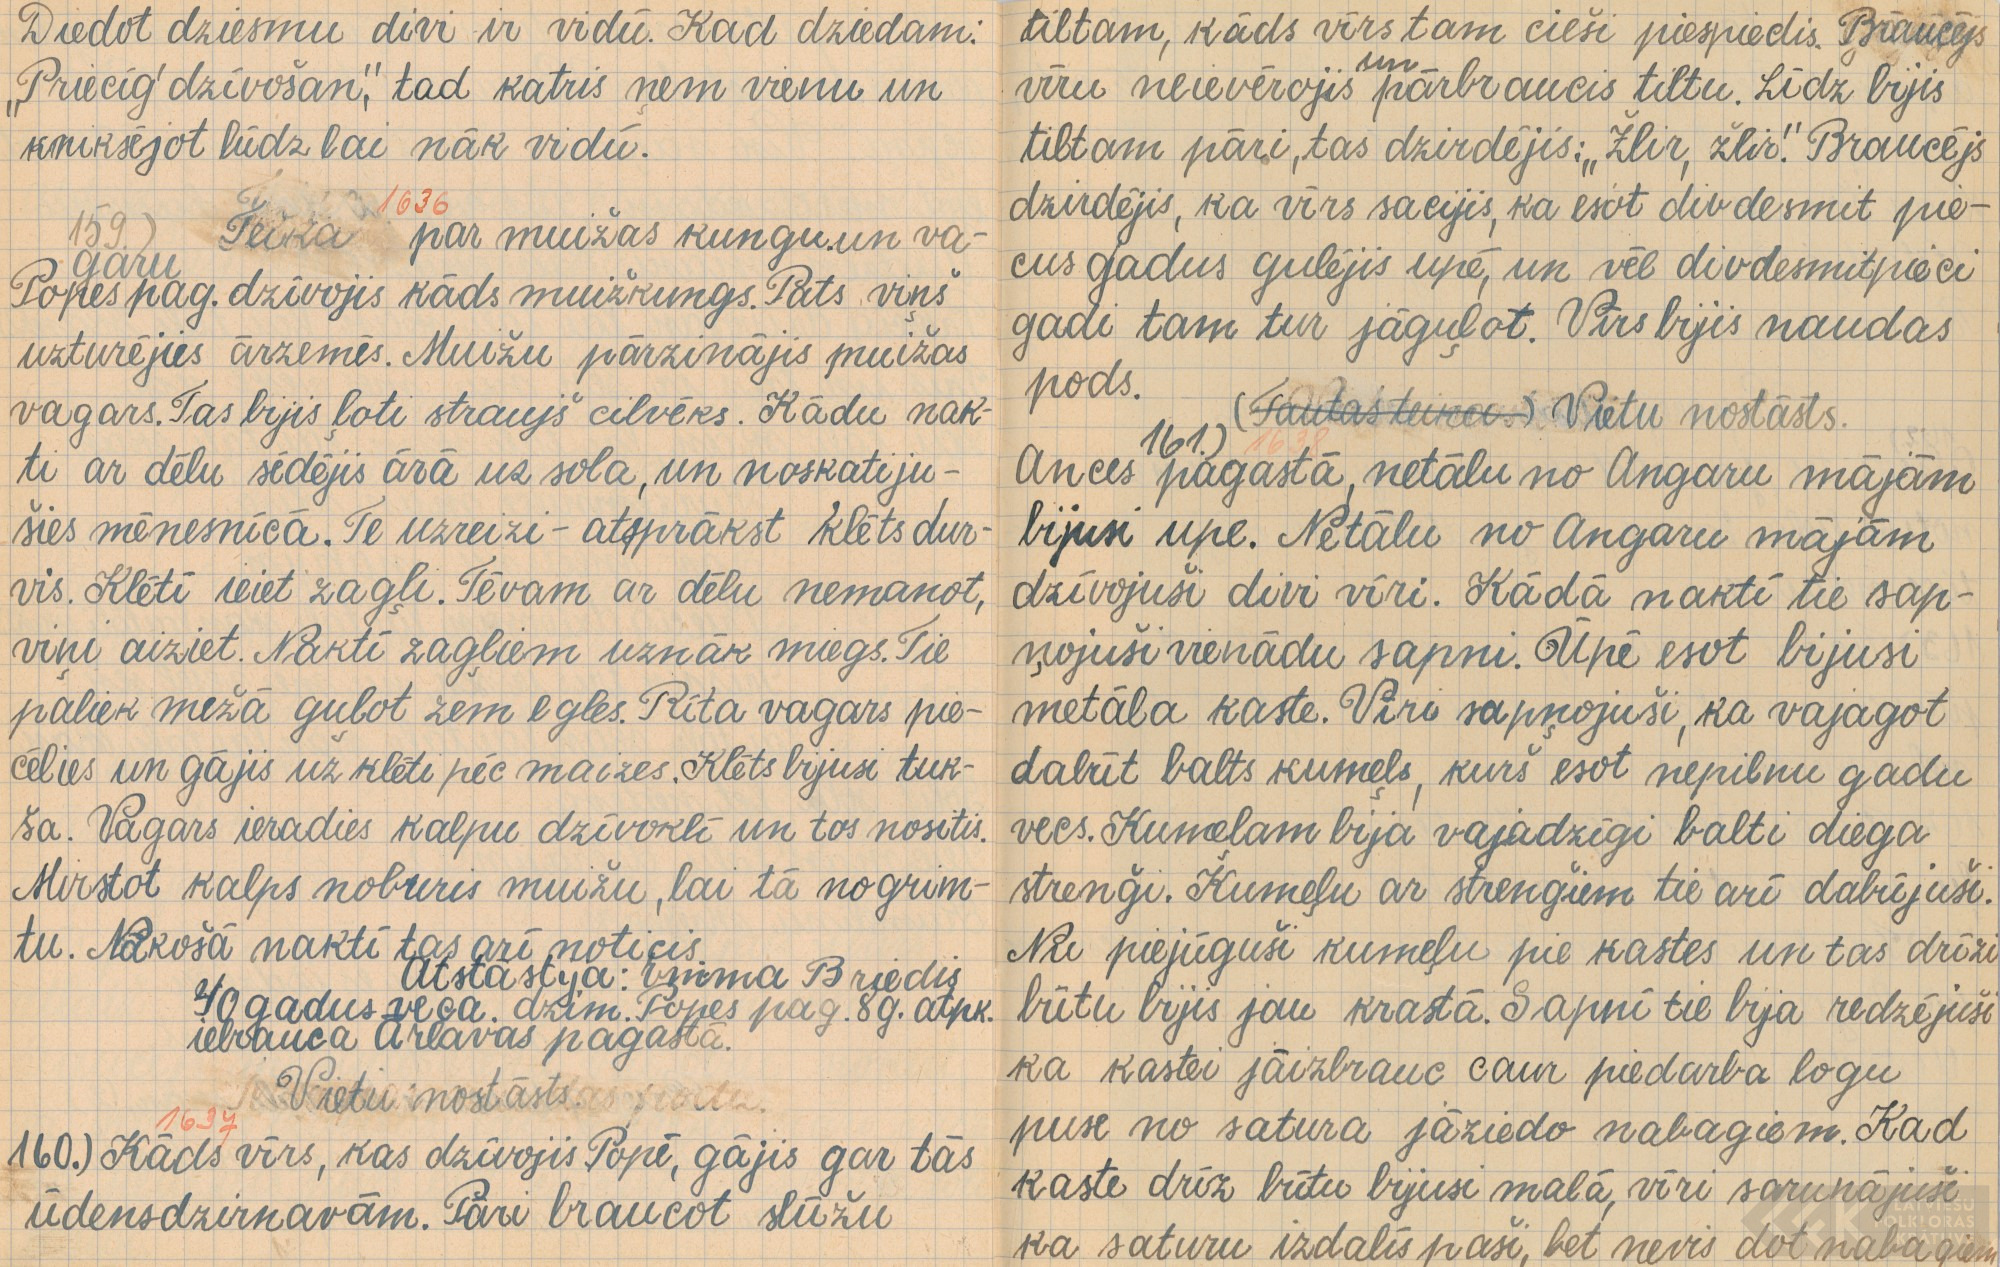 Diedot dziesmu divi ir vidū. Kad dziedam:
„Priecīg' dzīvošan", tad katris ņem vienu un
kniksējot lūdz lai nāk vidū.
1636
159.) Teika par muižas kungu un va-
garu
Popes pag. dzīvojis kāds muižkungs. Pats viņš
uzturējies ārzemēs. Muižu pārzinājis muižas
vagars. Tas bijis ļoti straujš cilvēks. Kādu nak-
ti ar dēlu sēdējis ārā uz sola, un noskatiju-
šies mēnesnīcā. Te uzreizi - atsprākst klēts dur-
vis. Klētī ieiet zagļi. Tēvam ar dēlu nemanot,
viņi aiziet. Naktī zagļiem uznāk miegs. Tie
paliek mežā guļot zem egles. Rīta vagars pie-
cēlies un gājis uz klēti pēc maizes. Klēts bijusi tuk-
ša. Vagars ieradies kalpu dzīvoklī un tos nositis.
Mirstot kalps noburis muižu, lai tā nogrim-
tu. Nākošā naktī tas arī noticis.
Atstāstija: Emma Briedis
40 gadus veca. dzim. Popes pag. 8 g. atpk.
iebrauca Ārlavas pagastā.
Vietu nostāsts.
1637
160.) Kāds vīrs, kas dzīvojis Popē, gājis gar tās
ūdensdzirnavām. Pāri braucot slūžu
tiltam, kāds vīrs tam cieši piespiedis. Braucējs
vīru neievērojis un pārbraucis tiltu. Līdz bijis
tiltam pāri, tas dzirdējis: „Žlir, žlir". Braucējs
dzirdējis, ka vīrs sacijis, ka esot divdesmit pie-
cus gadus gulējis upē, un vēl divdesmitpieci
gadi tam tur jāguļot. Vīrs bijis naudas
pods.
(Tautas teika.) Vietu nostāsts.
161.) 1638
Ances pagastā, netālu no Angaru mājām
bijusi upe. Netālu no Angaru mājām
dzīvojuši divi vīri. Kādā naktī tie sap-
ņojuši vienādu sapni. Upē esot bijusi
metāla kaste. Vīri sapņojuši, ka vajagot
dabūt balts kumeļs, kurš esot nepilnu gadu
vecs. Kumeļam bija vajadzīgi balti diega
strenģi. Kumeļu ar strenģiem tie arī dabūjuši.
Nu piejūguši kumeļu pie kastes un tas drīzi
būtu bijis jau krastā. Sapnī tie bija redzējuši
ka kastei jāizbrauc caur piedarba logu
puse no satura jāziedo nabagiem. Kad
kaste drīz būtu bijusi malā, vīri sarunājuši
ka saturu izdalīs paši, bet nevis dot nabagiem
LATVIEŠU
FOLKLORAS